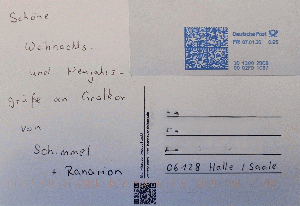 Schöne
Weihnachts-
und Neujahrs-
grüße an Grolkor
von
Schimmel
+ Ranarion
Deutsche Post
FR 07.01.20 0,95
06128 Halle / Saale